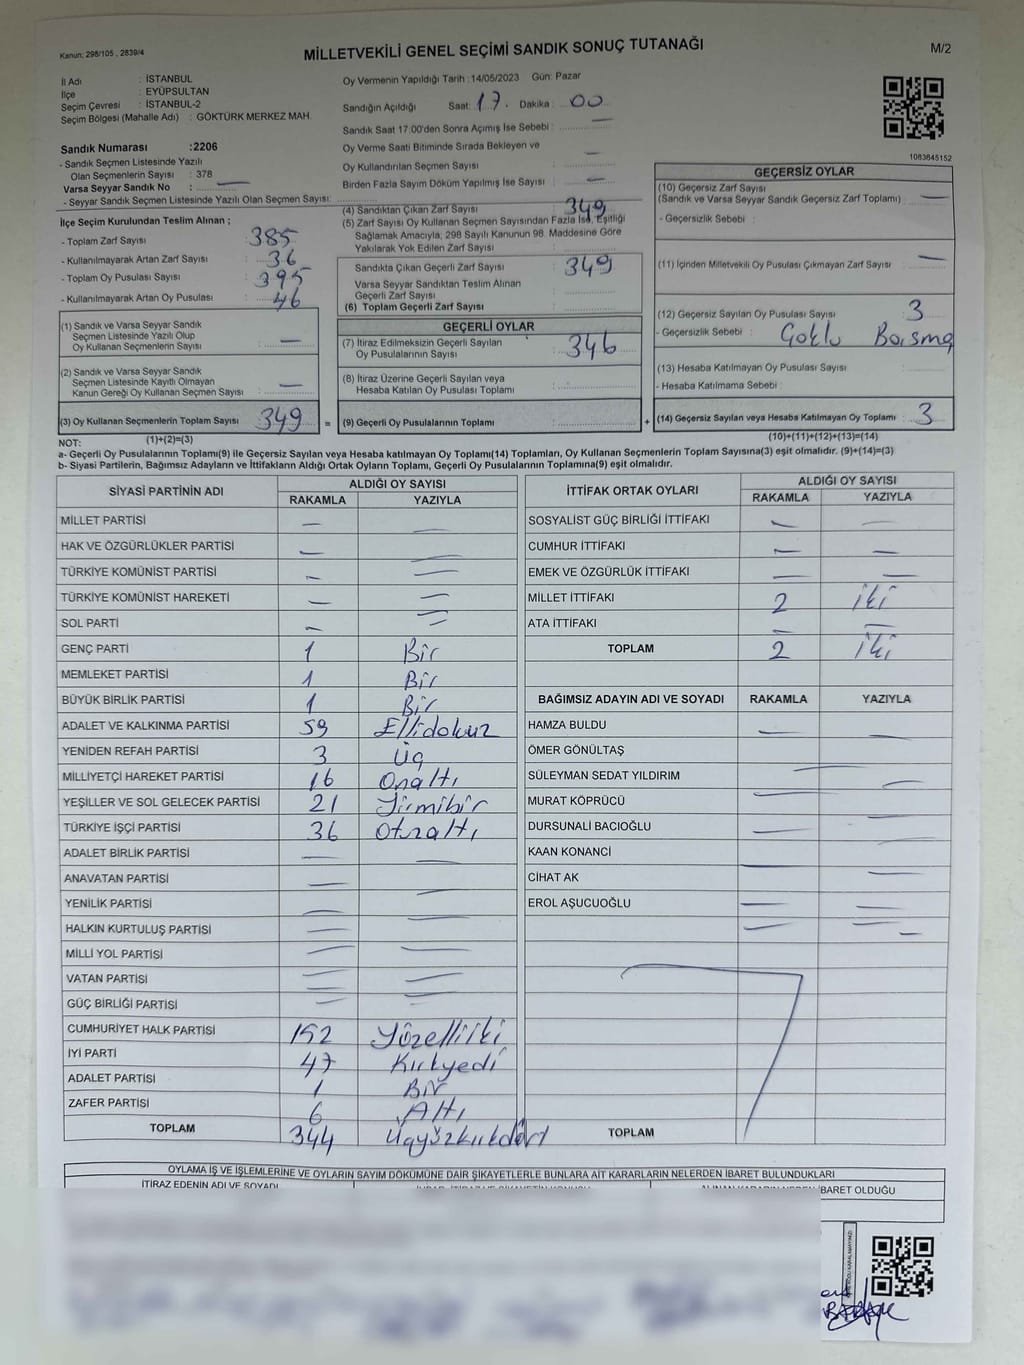 Kanun: 298/105 , 2839/4
MİLLETVEKİLİ GENEL SEÇİMİ SANDIK SONUÇ TUTANAĞI
M/2
İl Adı : İSTANBUL
İlçe : EYÜPSULTAN
Seçim Çevresi : İSTANBUL-2
Seçim Bölgesi (Mahalle Adı) : GÖKTÜRK MERKEZ MAH.
Sandık Numarası :2206
- Sandık Seçmen Listesinde Yazılı
Olan Seçmenlerin Sayısı : 378
Varsa Seyyar Sandık No : —
- Seyyar Sandık Seçmen Listesinde Yazılı Olan Seçmen Sayısı:
Oy Vermenin Yapıldığı Tarih :14/05/2023 Gün: Pazar
Sandığın Açıldığı Saat: 17. Dakika : 00
Sandık Saat 17:00'den Sonra Açımış İse Sebebi : —
Oy Verme Saati Bitiminde Sırada Bekleyen ve
Oy Kullandırılan Seçmen Sayısı : —
Birden Fazla Sayım Döküm Yapılmış İse Sayısı : —
1083645152
İlçe Seçim Kurulundan Teslim Alınan ;
- Toplam Zarf Sayısı : 385
- Kullanılmayarak Artan Zarf Sayısı : 36
- Toplam Oy Pusulası Sayısı : 395
- Kullanılmayarak Artan Oy Pusulası : 46
(1) Sandık ve Varsa Seyyar Sandık
Seçmen Listesinde Yazılı Olup
Oy Kullanan Seçmenlerin Sayısı : —
(2) Sandık ve Varsa Seyyar Sandık
Seçmen Listesinde Kayıtlı Olmayan
Kanun Gereği Oy Kullanan Seçmen Sayısı : —
(3) Oy Kullanan Seçmenlerin Toplam Sayısı : 349 =
(1)+(2)=(3)
(4) Sandıktan Çıkan Zarf Sayısı : 349
(5) Zarf Sayısı Oy Kullanan Seçmen Sayısından Fazla İse, Eşitliği
Sağlamak Amacıyla, 298 Sayılı Kanunun 98. Maddesine Göre
Yakılarak Yok Edilen Zarf Sayısı :
Sandıkta Çıkan Geçerli Zarf Sayısı : 349
Varsa Seyyar Sandıktan Teslim Alınan
Geçerli Zarf Sayısı :
(6) Toplam Geçerli Zarf Sayısı :
GEÇERLİ OYLAR
(7) İtiraz Edilmeksizin Geçerli Sayılan
Oy Pusulalarının Sayısı : 346
(8) İtiraz Üzerine Geçerli Sayılan veya
Hesaba Katılan Oy Pusulası Toplamı :
(9) Geçerli Oy Pusulalarının Toplamı : +
GEÇERSİZ OYLAR
(10) Geçersiz Zarf Sayısı
(Sandık ve Varsa Seyyar Sandık Geçersiz Zarf Toplamı) : —
- Geçersizlik Sebebi :
(11) İçinden Milletvekili Oy Pusulası Çıkmayan Zarf Sayısı : —
(12) Geçersiz Sayılan Oy Pusulası Sayısı : 3
- Geçersizlik Sebebi : Çoklu Basma
(13) Hesaba Katılmayan Oy Pusulası Sayısı :
- Hesaba Katılmama Sebebi :
(14) Geçersiz Sayılan veya Hesaba Katılmayan Oy Toplamı : 3
(10)+(11)+(12)+(13)=(14)
NOT:
a- Geçerli Oy Pusulalarının Toplamı(9) ile Geçersiz Sayılan veya Hesaba katılmayan Oy Toplamı(14) Toplamları, Oy Kullanan Seçmenlerin Toplam Sayısına(3) eşit olmalıdır. (9)+(14)=(3)
b- Siyasi Partilerin, Bağımsız Adayların ve İttifakların Aldığı Ortak Oyların Toplamı, Geçerli Oy Pusulalarının Toplamına(9) eşit olmalıdır.
SİYASİ PARTİNİN ADI ALDIĞI OY SAYISI
RAKAMLA YAZIYLA
MİLLET PARTİSİ — —
HAK VE ÖZGÜRLÜKLER PARTİSİ — —
TÜRKİYE KOMÜNİST PARTİSİ — —
TÜRKİYE KOMÜNİST HAREKETİ — —
SOL PARTİ — —
GENÇ PARTİ 1 Bir
MEMLEKET PARTİSİ 1 Bir
BÜYÜK BİRLİK PARTİSİ 1 Bir
ADALET VE KALKINMA PARTİSİ 59 Ellidokuz
YENİDEN REFAH PARTİSİ 3 Üç
MİLLİYETÇİ HAREKET PARTİSİ 16 Onaltı
YEŞİLLER VE SOL GELECEK PARTİSİ 21 Yirmibir
TÜRKİYE İŞÇİ PARTİSİ 36 Otuzaltı
ADALET BİRLİK PARTİSİ — —
ANAVATAN PARTİSİ —
YENİLİK PARTİSİ — —
HALKIN KURTULUŞ PARTİSİ — —
MİLLİ YOL PARTİSİ — —
VATAN PARTİSİ — —
GÜÇ BİRLİĞİ PARTİSİ — —
CUMHURİYET HALK PARTİSİ 152 Yüzelliiki
İYİ PARTİ 47 Kırkyedi
ADALET PARTİSİ 1 Bir
ZAFER PARTİSİ 6 Altı
TOPLAM 344 Üçyüzkırkdört
İTTİFAK ORTAK OYLARI ALDIĞI OY SAYISI
RAKAMLA YAZIYLA
SOSYALİST GÜÇ BİRLİĞİ İTTİFAKI — —
CUMHUR İTTİFAKI — —
EMEK VE ÖZGÜRLÜK İTTİFAKI — —
MİLLET İTTİFAKI 2 iki
ATA İTTİFAKI — —
TOPLAM 2 iki
BAĞIMSIZ ADAYIN ADI VE SOYADI RAKAMLA YAZIYLA
HAMZA BULDU — —
ÖMER GÖNÜLTAŞ —
SÜLEYMAN SEDAT YILDIRIM — —
MURAT KÖPRÜCÜ — —
DURSUNALİ BACIOĞLU — —
KAAN KONANCİ — —
CİHAT AK — —
EROL AŞUCUOĞLU — —
TOPLAM
OYLAMA İŞ VE İŞLEMLERİNE VE OYLARIN SAYIM DÖKÜMÜNE DAİR ŞİKAYETLERLE BUNLARA AİT KARARLARIN NELERDEN İBARET BULUNDUKLARI
İTİRAZ EDENİN ADI VE SOYADI
İBARET OLDUĞU